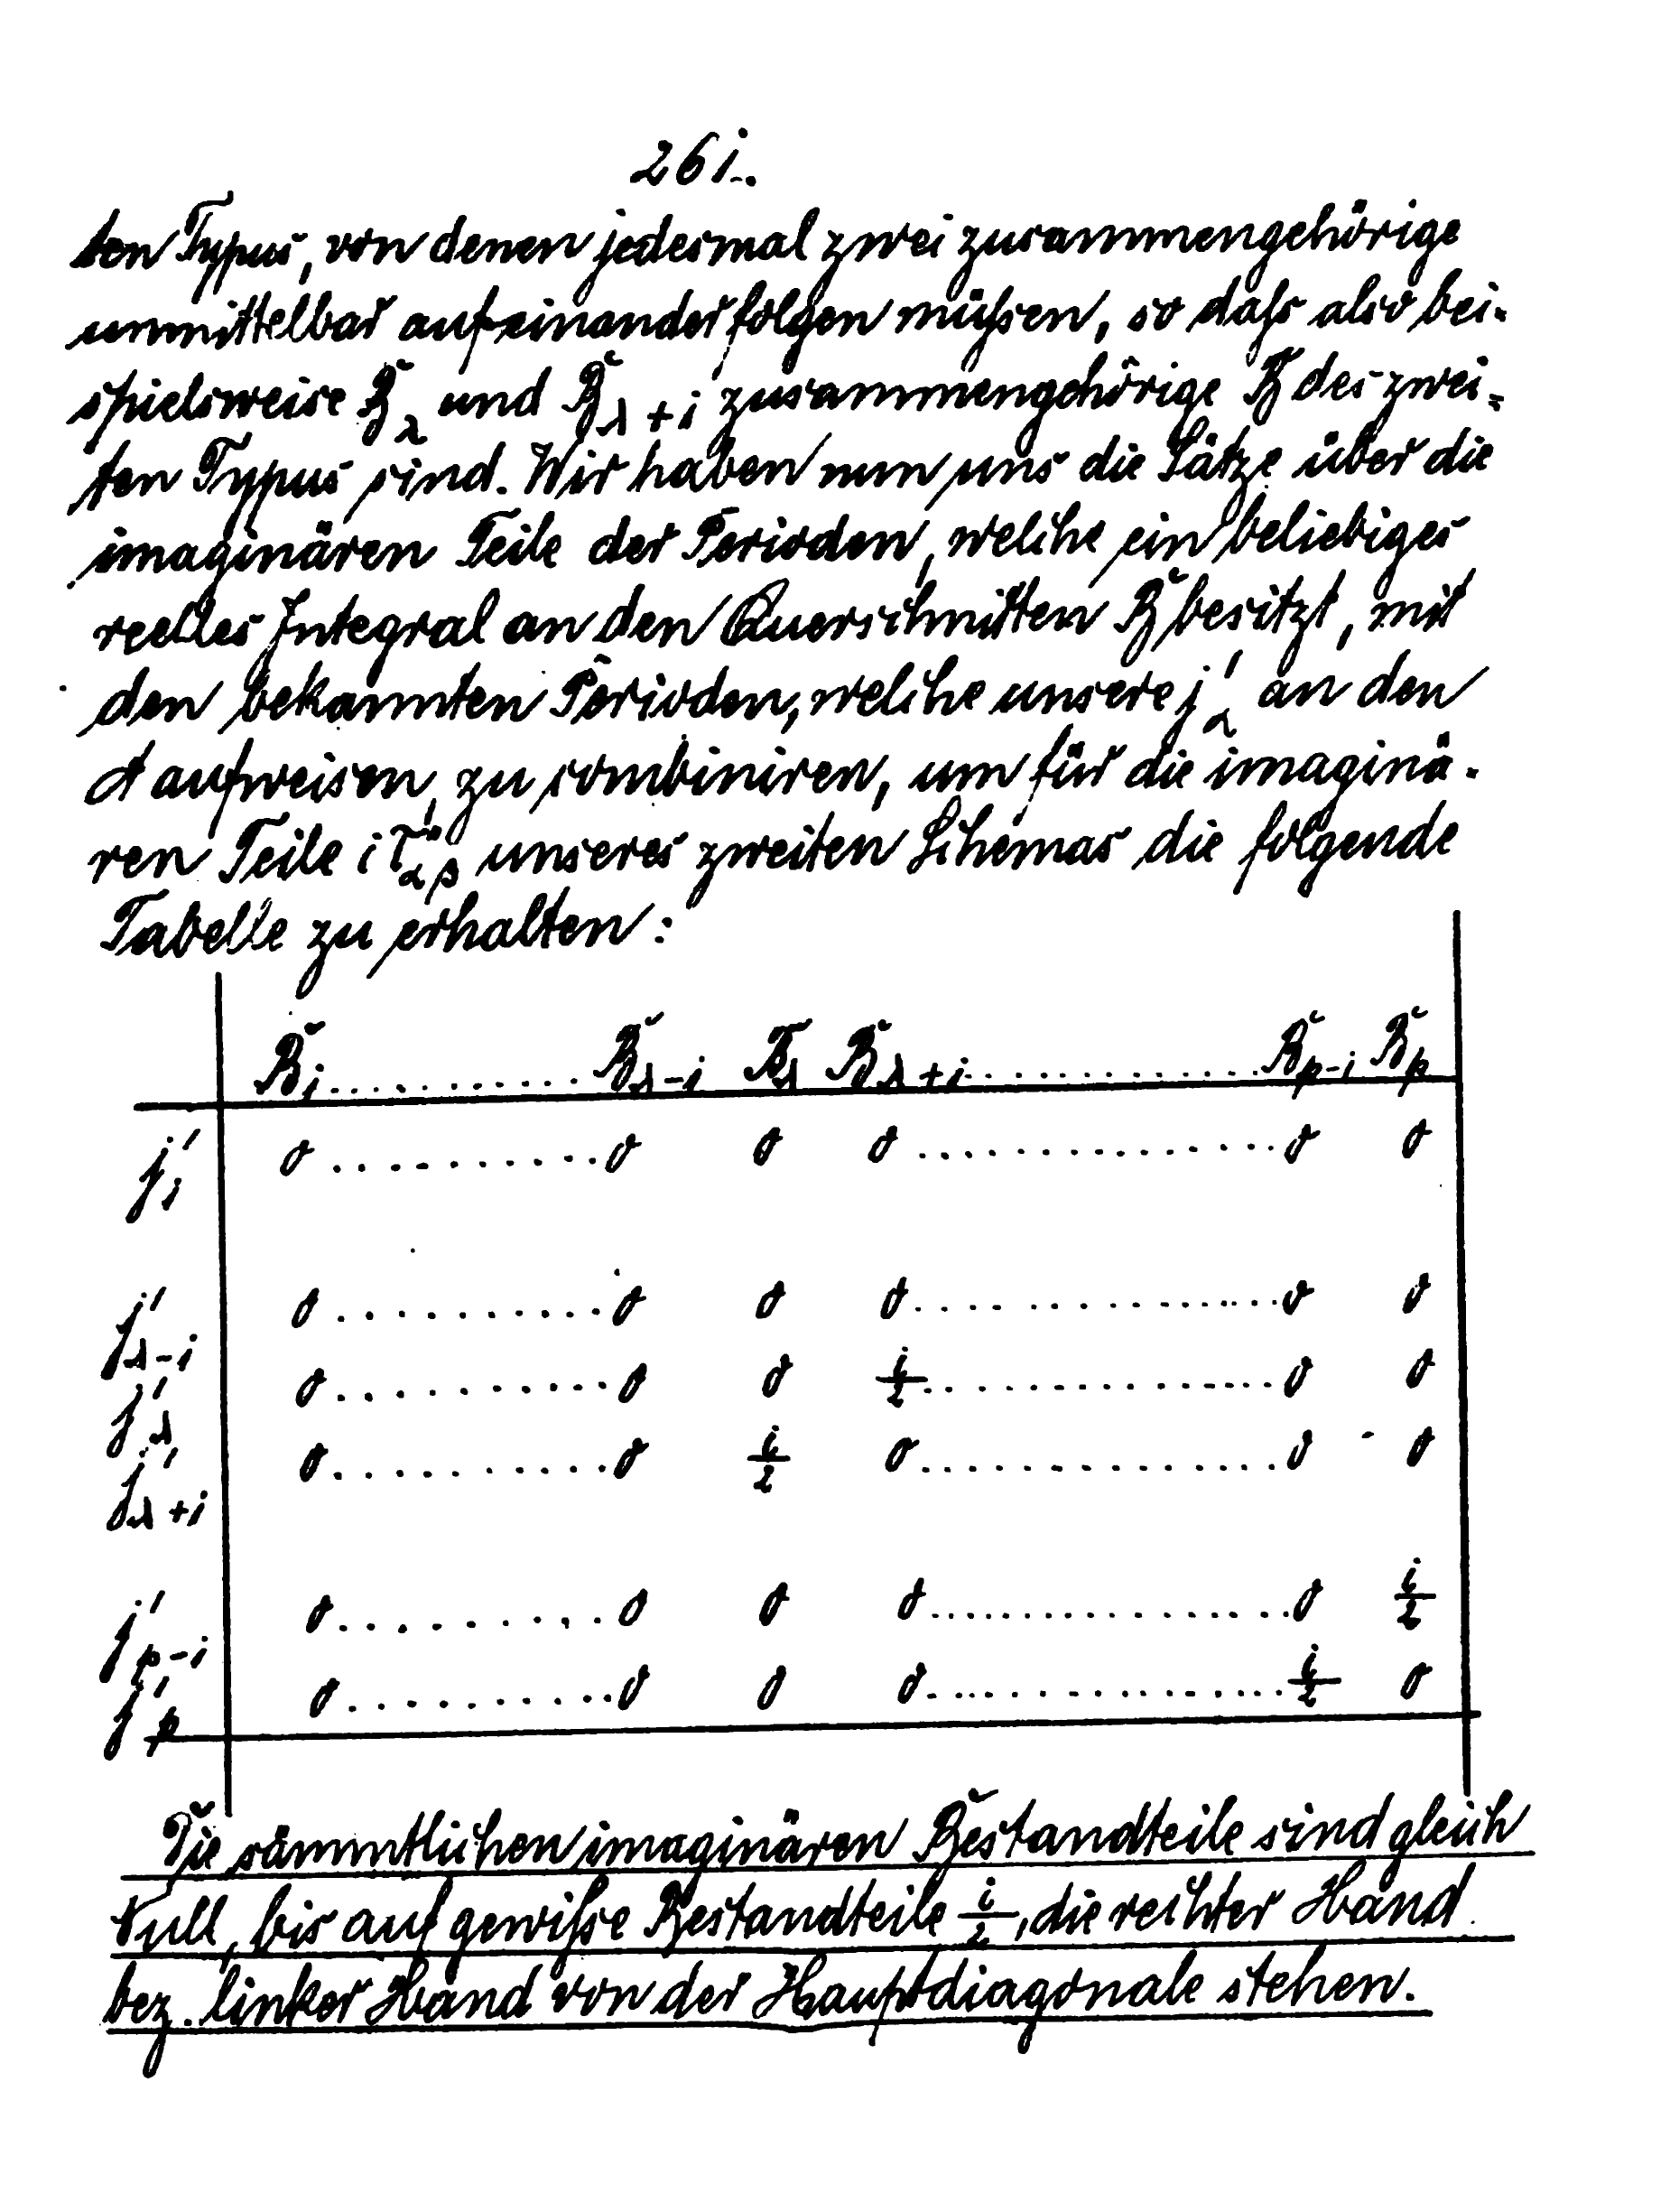 261.
ten Typus, von denen jedesmal zwei zusammengehörige
unmittelbar aufeinander folgen müßen, so daß also bei-
spielsweise B̆_λ und B̆_λ+1 zusammengehörige B̆ des zwei-
ten Typus sind. Wir haben nun uns die Sätze über die
imaginären Teile der Perioden, welche ein beliebiges
reelles Integral an den Querschnitten B̆ besitzt, mit
den bekannten Perioden, welche unsere j'_α an den
A aufweisen, zu combiniren, um für die imaginä-
ren Teile i τ''_αβ unseres zweiten Schemas die folgende
Tabelle zu erhalten:
B̆_1 . . . . . . B̆_λ-1 B̆_λ B̆_λ+1 . . . . . . B̆_p-1 B̆_p
j'_1 0 . . . . . . 0 0 0 . . . . . . 0 0
j'_λ-1 0 . . . . . . 0 0 0 . . . . . . 0 0
j'_λ 0 . . . . . . 0 0 i/2 . . . . . . 0 0
j'_λ+1 0 . . . . . . 0 i/2 0 . . . . . . 0 0
j'_p-1 0 . . . . . . 0 0 0 . . . . . . 0 i/2
j'_p 0 . . . . . . 0 0 0 . . . . . . i/2 0
Die sämmtlichen imaginären Bestandteile sind gleich
Null, bis auf gewiße Bestandteile i/2, die rechter Hand
bez. linker Hand von der Hauptdiagonale stehen.